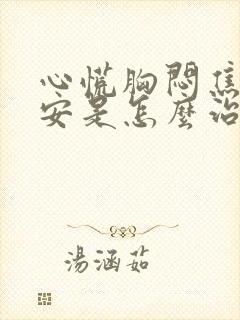 心慌胸悶焦
安是怎麼治
湯涵茹